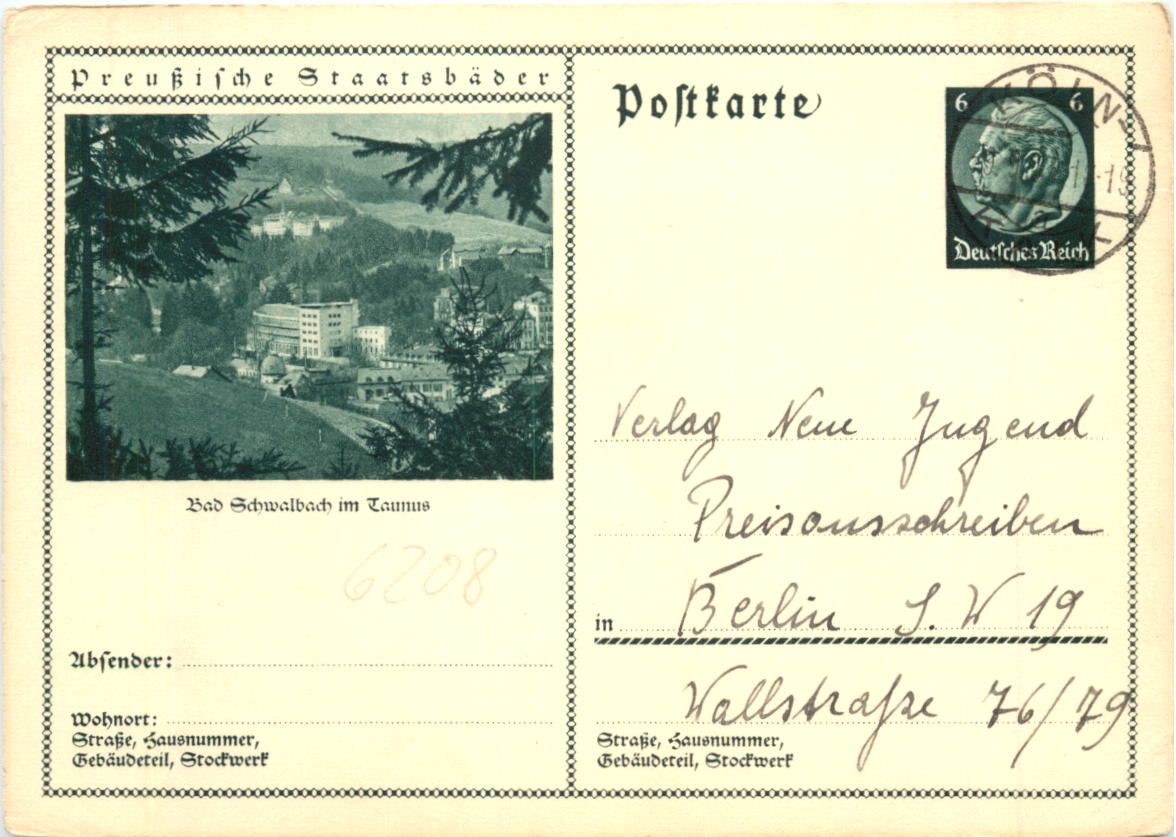 Preußische Staatsbäder
Bad Schwalbach im Taunus
6208
Absender:
Wohnort:
Straße, Hausnummer,
Gebäudeteil, Stockwerk
Postkarte
6 6
Deutsches Reich
KÖLN-
Verlag Neue Jugend
Preisausschreiben
in Berlin S.W 19
Wallstraße 76/79
Straße, Hausnummer,
Gebäudeteil, Stockwerk